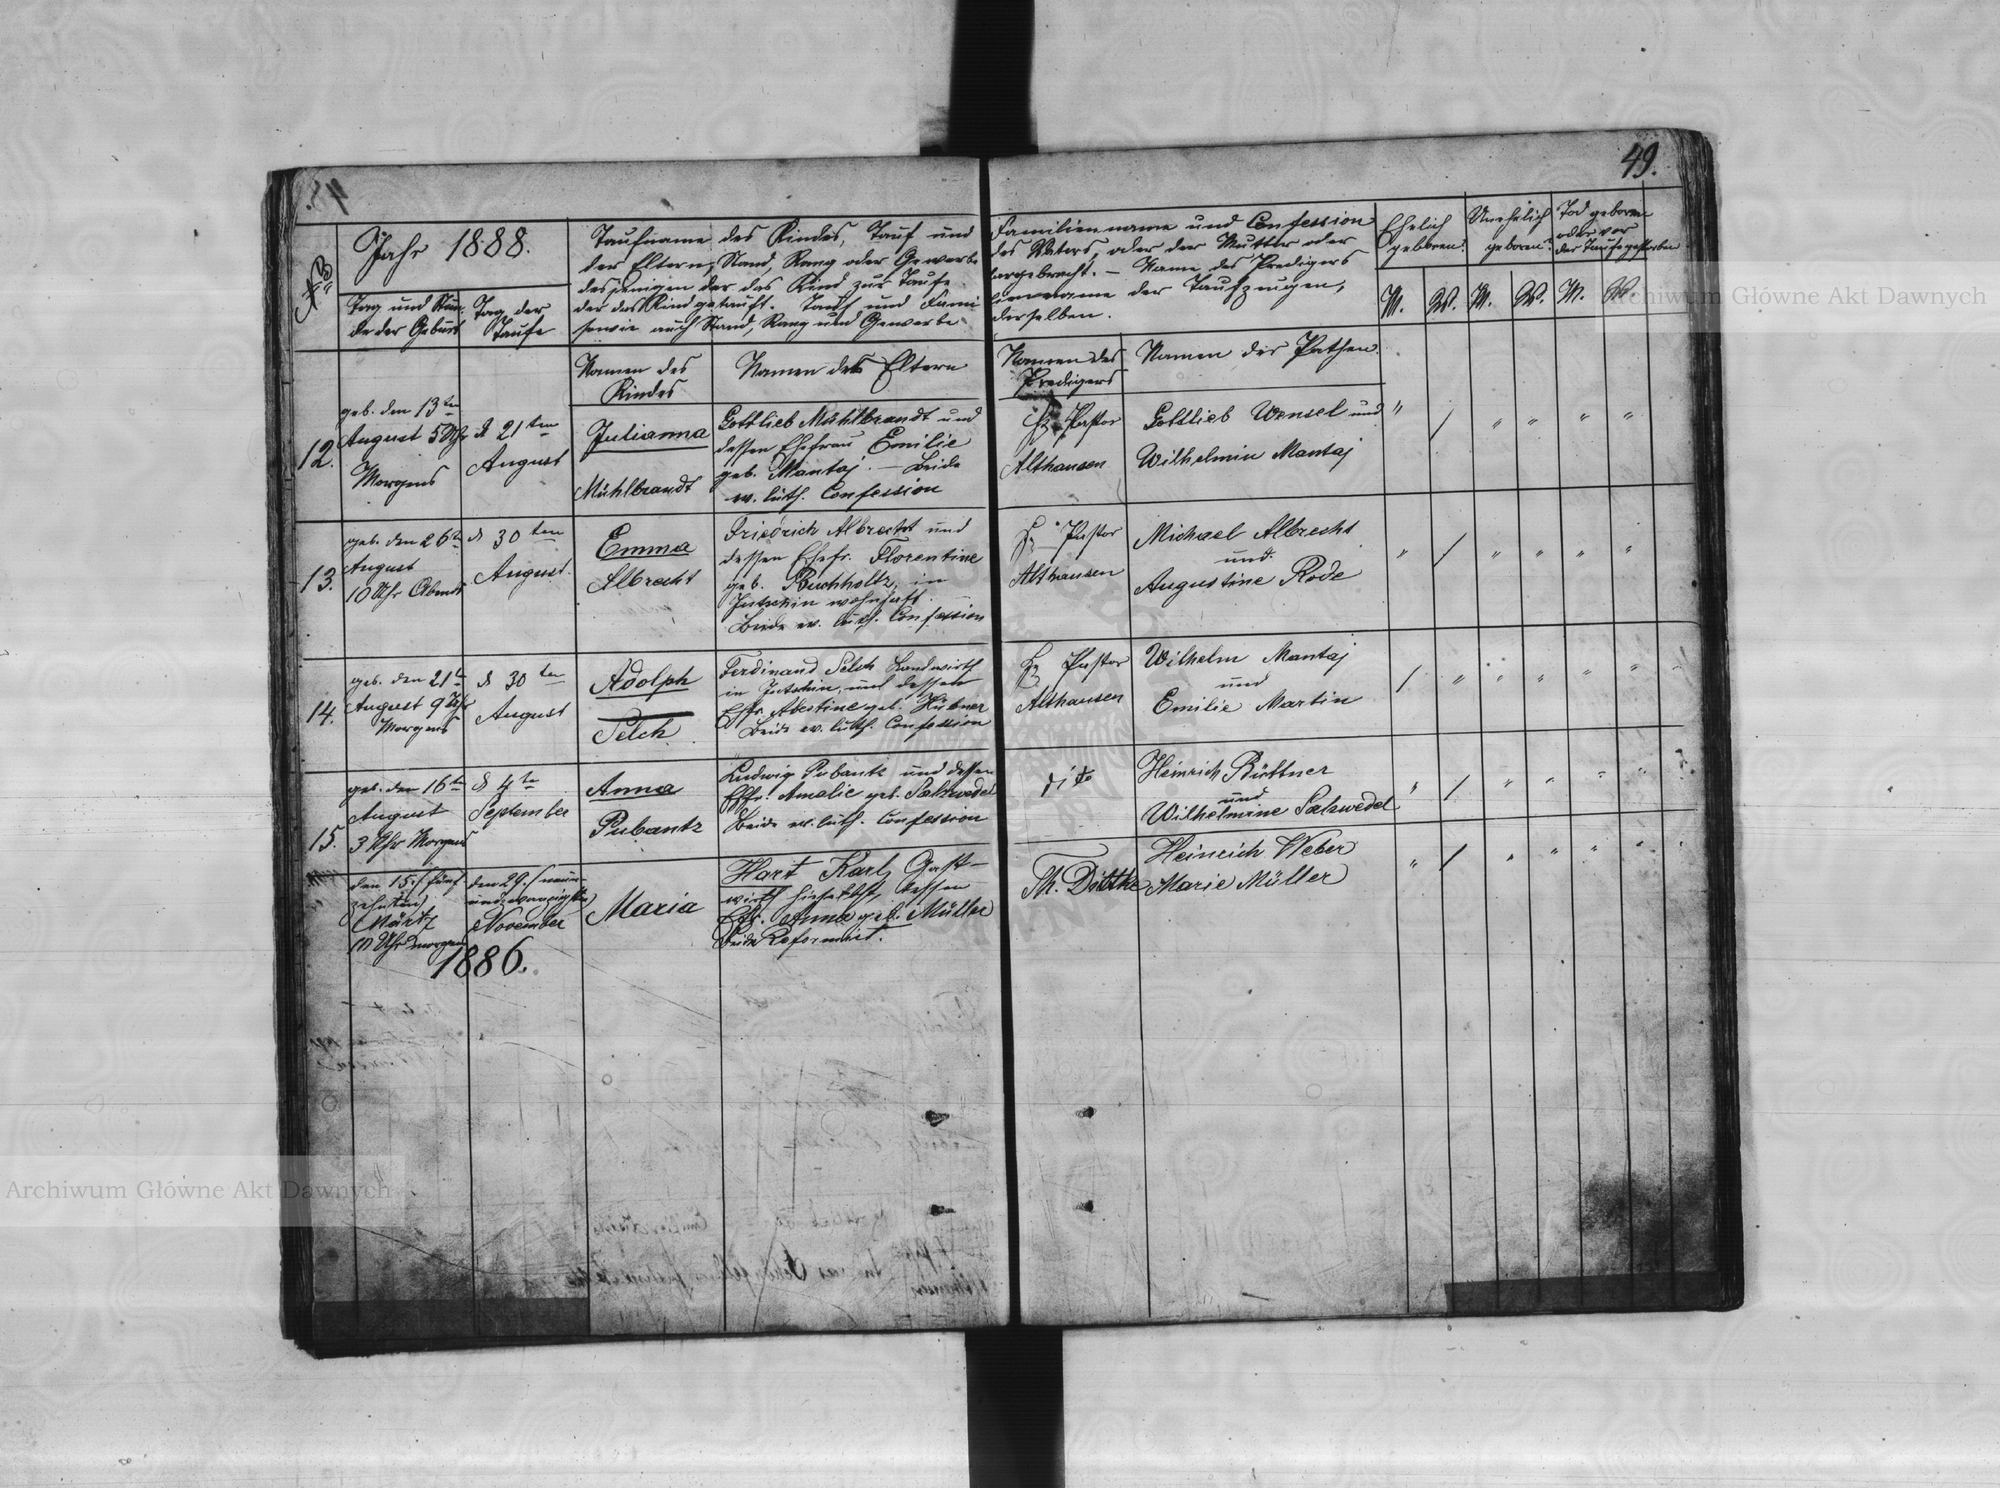 48.
49.
№
Jahr 1888.
Tag und Stun-
de der Geburt
Tag der
Taufe
Taufname des Kindes, Tauf und
der Eltern, Stand, Rang oder Gewerbe
desjenigen der das Kind zur Taufe
der das Kind getauft. Tauf und Fami
sowie auch Stand, Rang und Gewerbe
Namen des
Kindes
Namen der Eltern
Familienname und Confession
des Vaters, oder der Mutter oder
dargebracht. — Name des Predigers
lienname der Taufzeugen,
derselben.
Namen des
Predigers
Namen der Pathen.
Ehelich
geboren.
Unehelich
geboren.
Tod geboren
oder vor
der Taufe gestorben
M. W. M. W. M. W.
12.
geb. den 13ten
August 5 Uhr
Morgens
d 21ten
August
Julianna
Mühlbrandt
Gottlieb Mühlbrandt und
dessen Ehefrau Emilie
geb. Mantaj. — Beide
ev. luth. Confession
H. Pastor
Althausen
Gottlieb Wensel und
Wilhelmin Mantaj
" / " " " "
13.
geb. den 26ten
August
10 Uhr Abends
d 30ten
August.
Emma
Albrecht
Friedrich Albrecht und
dessen Ehefr. Florentine
geb. Buchholtz, in
wohnhaft.
Beide ev. luth. Confession
H. Pastor
Althausen
Michael Albrecht
und
Augustine Rode
" / " " " "
14.
geb. den 21t
August 9 Uhr
Morgens
d 30ten
August
Adolph
Selch
Ferdinand Selch Landwirth
in und dessen
Ehfr. geb. Hübner
Beide ev. luth. Confession
H. Pastor
Althausen
Wilhelm Mantaj
und
Emilie Martin
/ " " " " "
15.
geb. den 16ten
August
3 Uhr Morgens
d 4te
September
Anna
Pubantz
Ludwig Pubantz und dessen
Ehfr. Amalie geb. Salzwedel
Beide ev. luth. Confession
dito
Heinrich Büttner
und
Wilhelmine Salzwedel
" / " " " "
den 15./fünf
zehnten/
März
10 Uhr morgens
1886.
den 29./neun-
undzwanzigsten/
November
Maria
Hart Karl, Gast-
wirth hieselbst, dessen
Ehfr. Anna geb. Müller
Beide Reformirt.
Th. Dittke
Heinrich Weber
Marie Müller
" / " " " "
Archiwum Główne Akt Dawnych
Archiwum Główne Akt Dawnych